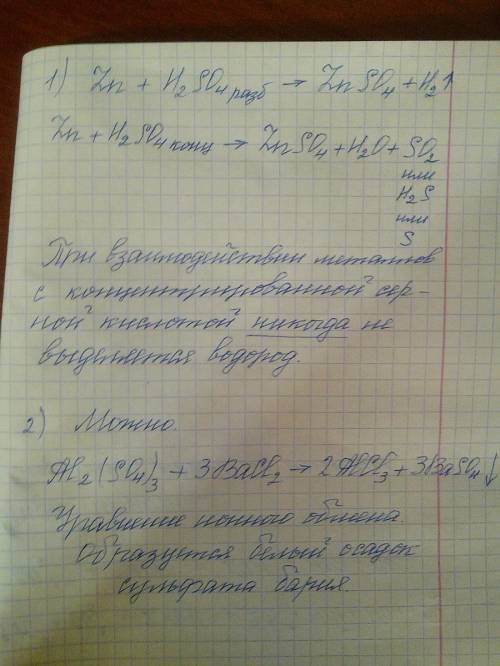 1) Zn + H₂SO₄ разб → ZnSO₄ + H₂↑
Zn + H₂SO₄ конц → ZnSO₄ + H₂O + SO₂
или
H₂S
или
S
При взаимодействии металлов
с концентрированной сер-
ной кислотой никогда не
выделяется водород.
2) Можно.
Al₂(SO₄)₃ + 3BaCl₂ → 2AlCl₃ + 3BaSO₄↓
Уравнение ионного обмена.
Образуется белый осадок
сульфата бария.